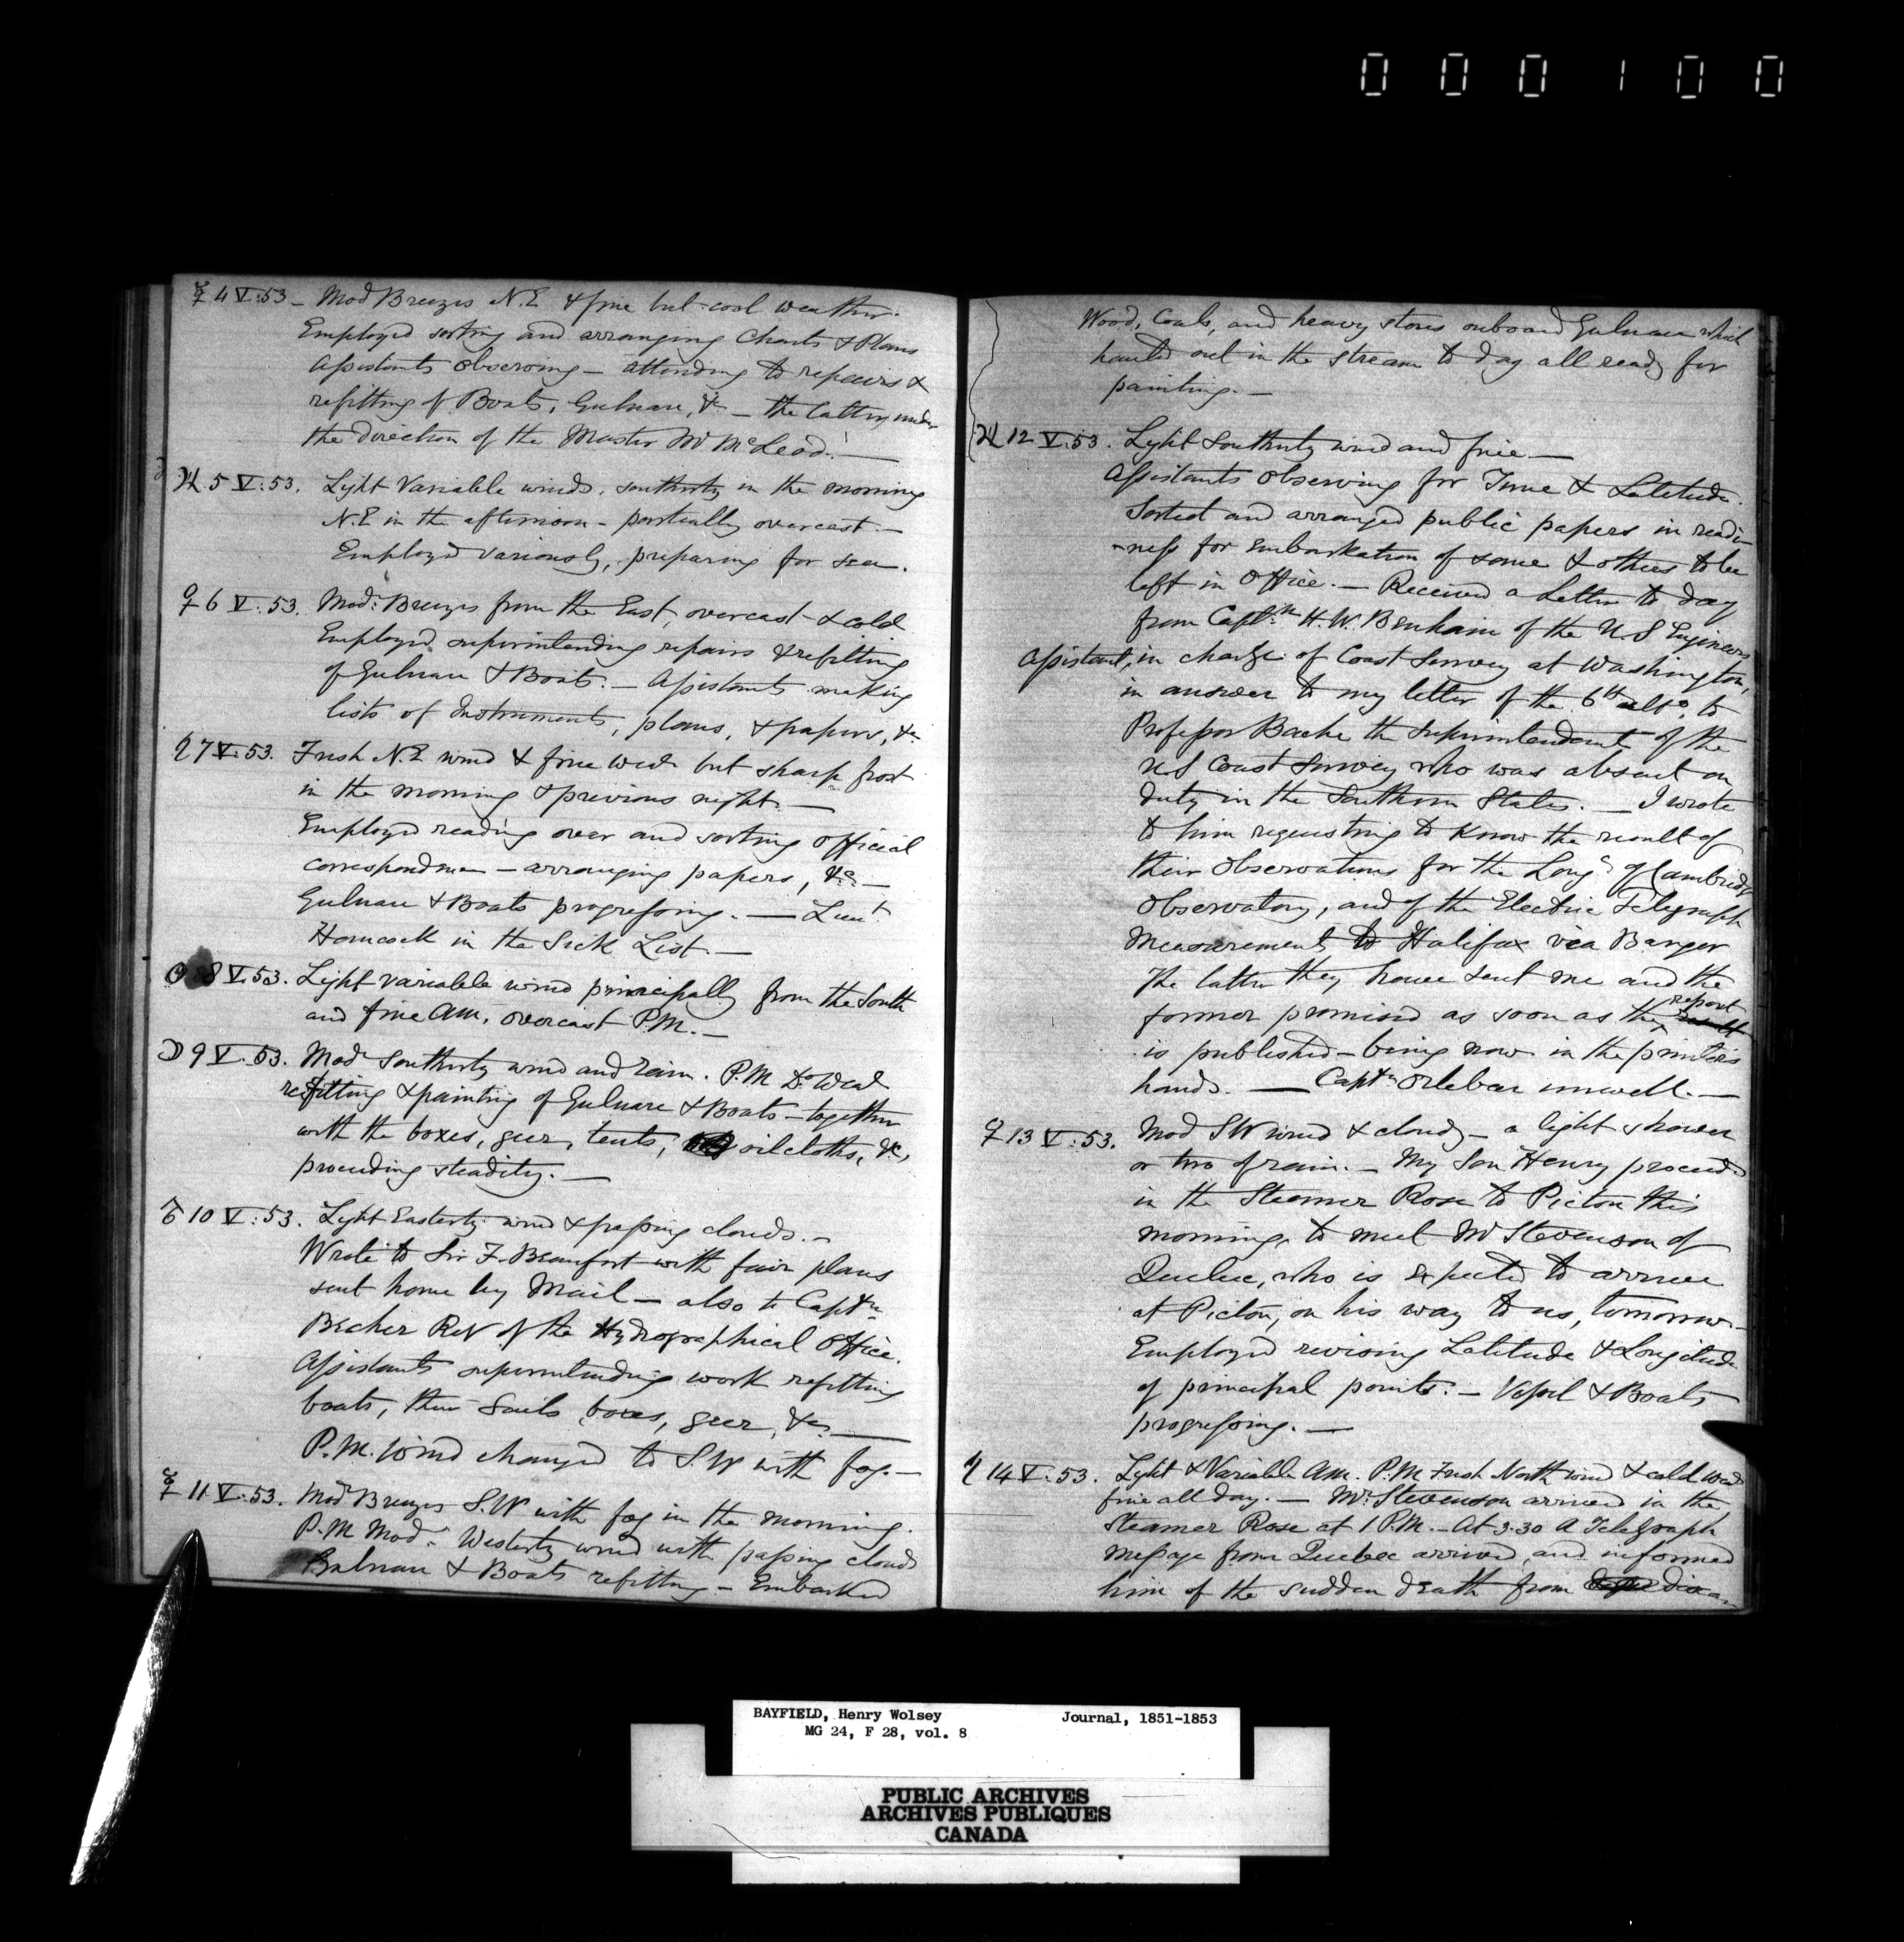 000100
☿ 4 V:53 – Mod Breezes N.E & fine but cool weather.
Employed sorting and arranging Charts & Plans
Assistants observing – attending to repairs &
refitting of Boats, Gulnare, &c – the latter under
the direction of the Master Mr McLeod. –
♃ 5 V:53. Light Variable winds, southerly in the morning
N.E in the afternoon – partially overcast. –
Employed variously, preparing for sea.
♀ 6 V:53. Mod: Breezes from the East, overcast & cold
Employed superintending repairs & refitting
of Gulnare & Boats. – Assistants making
lists of Instruments, plans, & papers, &c
♄ 7 V:53. Fresh N.E wind & fine Wear but sharp frost
in the morning & previous night. –
Employed reading over and sorting official
correspondence – arranging papers, &c –
Gulnare & Boats progressing. – Lieut
Hancock in the Sick List. –
☉ 8 V:53. Light variable wind principally from the South
and fine AM, overcast P.M. –
☽ 9 V:53. Mod Southerly wind and rain. P.M Do Wear
refitting & painting of Gulnare & Boats – together
with the boxes, geer, tents, oilcloths, &c,
proceeding steadily. –
♂ 10 V:53. Light Easterly wind & passing clouds. –
Wrote to Sir F. Beaufort with fair plans
sent home by Mail – also to Captn
Becher RN of the Hydrographical Office.
Assistants superintending work refitting
boats, their Sails, boxes, geer, &c –
P.M. Wind changed to S.W with fog. –
☿ 11 V:53. Mod Breezes S.W with fog in the morning.
P.M Mod: Westerly wind with passing clouds
Gulnare & Boats refitting – Embarked
Wood, Coals, and heavy stores onboard Gulnare which
hauled out in the stream to day all ready for
painting. –
♃ 12 V:53. Light Southerly wind and fine. –
Assistants Observing for Time & Latitude.
Sorted and arranged public papers in readi-
-ness for embarkation of some & others to be
left in Office. – Received a Letter to day
from Captn H. W. Benham of the U.S Engineers
Assistant, in charge of Coast Survey at Washington,
in answer to my letter of the 6th ulto, to
Professor Bache the Superintendent of the
U.S Coast Survey who was absent on
duty in the Southern States. – I wrote
to him requesting to know the result of
their Observations for the Longe of Cambridge
Observatory, and of the Electric Telegraph
Measurements to Halifax via Bangor
The latter they have sent me and the
former promised as soon as the result
report
is published – being now in the printer's
hands. – Captn Orlebar unwell. –
♀ 13 V:53. Mod SW wind & cloudy – a light shower
or two of rain. – My Son Henry proceeded
in the Steamer Rose to Pictou this
morning, to meet Mr Stevenson of
Quebec, who is expected to arrive
at Pictou, on his way to us, tomorrow –
Employed revising Latitude & Longitude
of principal points. – Vessel & Boats
progressing. –
♄ 14 V:53. Light & Variable AM. P.M Fresh North wind & cold Wear
fine all day. – Mr Stevenson arrived in the
Steamer Rose at 1 P.M. – At 3.30 A Telegraph
message from Quebec arrived, and informed
him of the sudden death from
BAYFIELD, Henry Wolsey Journal, 1851-1853
MG 24, F 28, vol. 8
PUBLIC ARCHIVES
ARCHIVES PUBLIQUES
CANADA